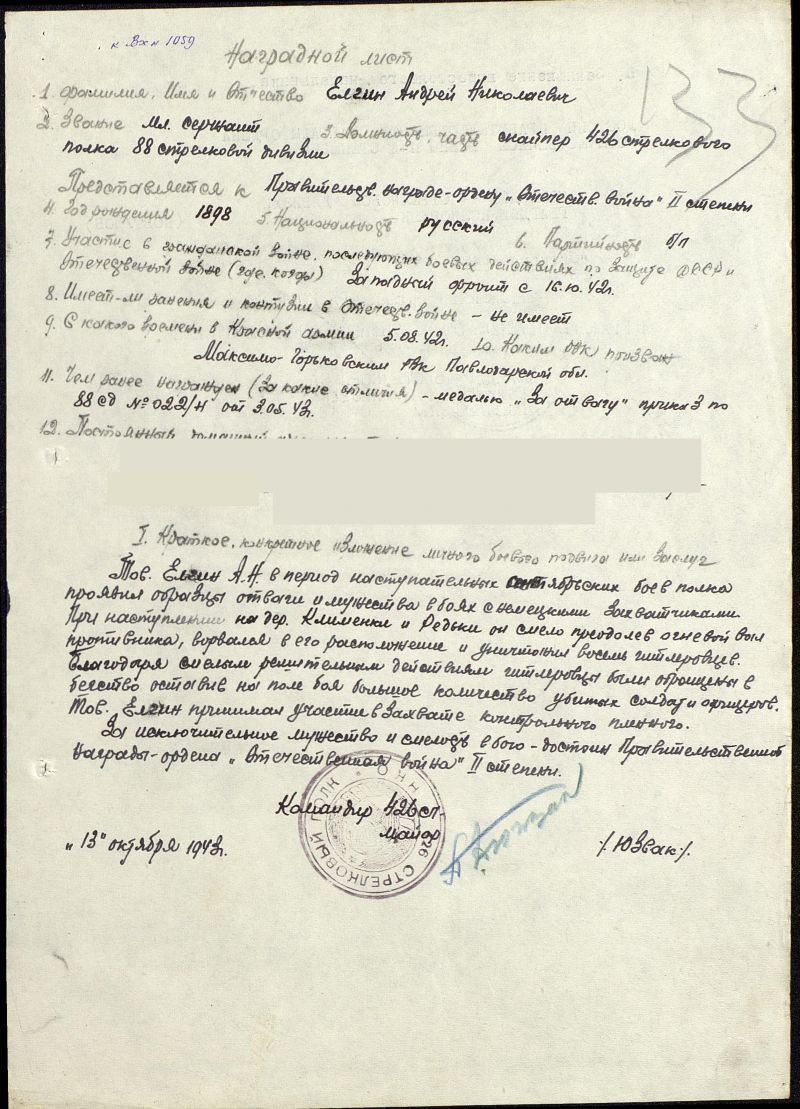 к Вх н 1059
Наградной лист
133
1. Фамилия, Имя и Отчество Елгин Андрей Николаевич
2. Звание мл. сержант 3. Должность, часть снайпер 426 стрелкового
полка 88 стрелковой дивизии
Представляется к Правительств. награде-ордену „Отечеств. война" II степени
4. Год рождения 1898 5. Национальность русский 6. Партийность б/п
7. Участие в гражданской войне, последующих боевых действиях по защите СССР и
Отечественной войне (где, когда) Западный фронт с 16.10.42г.
8. Имеет-ли ранения и контузии в Отечеств. войне - не имеет
9. С какого времени в Красной армии 5.08.42г. 10. Каким РВК призван
Максимо-Горьковским РВК Павлодарской обл.
11. Чем ранее награжден (за какие отличия) - медалью „За отвагу" приказ по
88 сд № 022/н от 3.05.43г.
12. Постоянный домашний
I. Краткое, конкретное изложение личного боевого подвига или заслуг
Тов. Елгин А.Н. в период наступательных октябрьских боев полка
проявил образцы отваги и мужества в боях с немецкими захватчиками.
При наступлении на дер. Клименки и Редьки он смело преодолев огневой вал
противника, ворвался в его расположение и уничтожил восемь гитлеровцев.
Благодаря смелым решительным действиям гитлеровцы были обращены в
бегство оставив на поле боя большое количество убитых солдат и офицеров.
Тов. Елгин принимал участие в захвате контрольного пленного.
За исключительное мужество и смелость в бою - достоин Правительственной
награды-ордена „Отечественная война" II степени.
Командир 426 сп
майор /Юзвак/.
„13" октября 1943г.
426 СТРЕЛКОВЫЙ ПОЛК